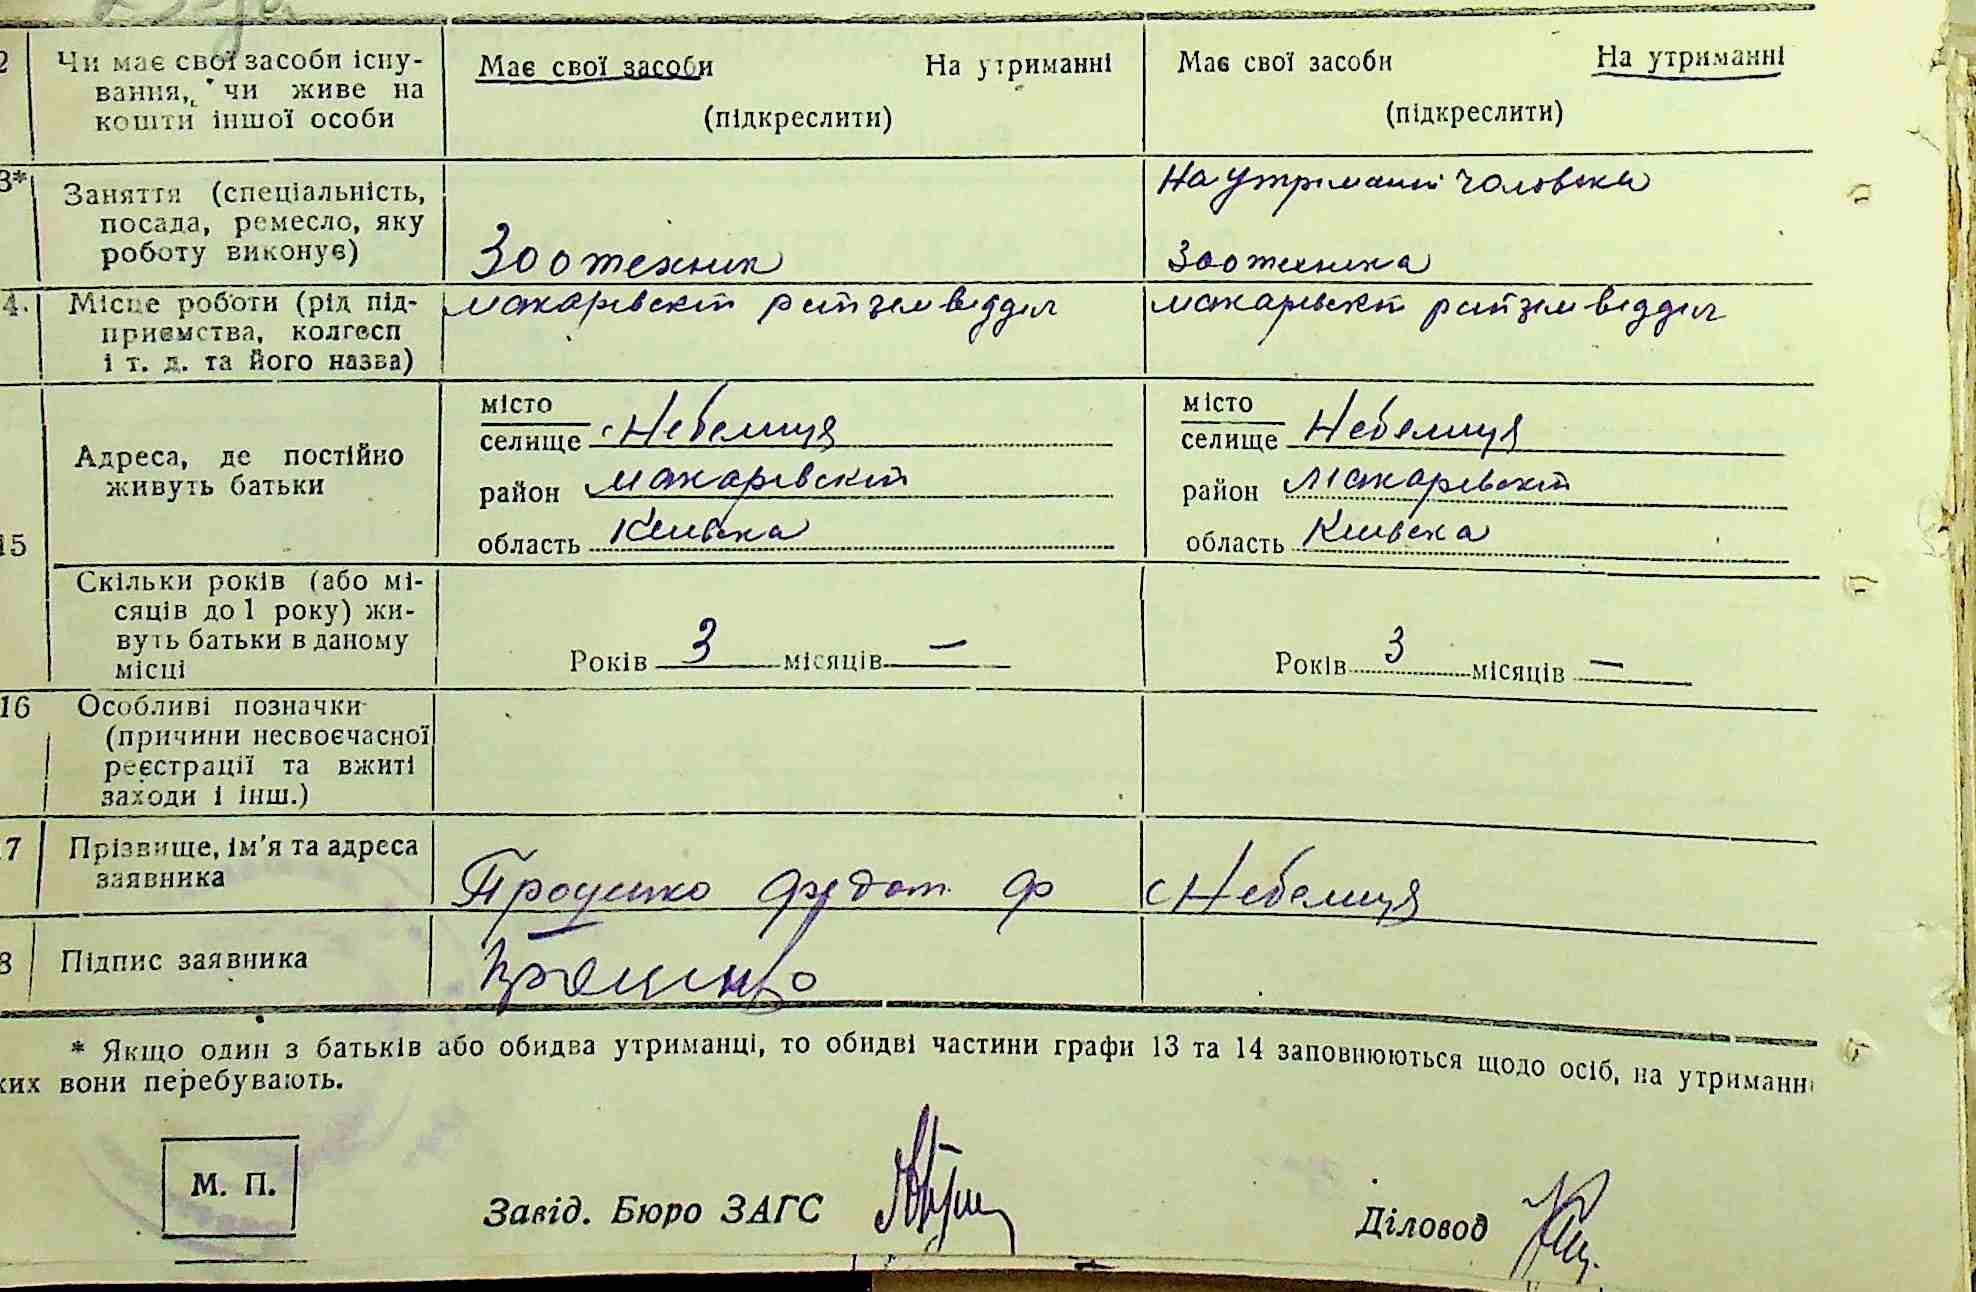 2 Чи має свої засоби існу- Має свої засоби На утриманні Має свої засоби На утриманні
вання, чи живе на
кошти іншої особи (підкреслити) (підкреслити)
3* Заняття (спеціальність, На утриманні чоловіка
посада, ремесло, яку
роботу виконує) Зоотехник Зоотехника
4. Місце роботи (рід під- макаревскій райземвідділ макаревскій райземвідділ
приємства, колгосп
і т. д. та його назва)
місто місто
Адреса, де постійно селище с Небелиця селище Небелиця
живуть батьки район макаревскій район макаревскій
15 область Киівска область Киівска
Скільки років (або мі-
сяців до 1 року) жи-
вуть батьки в даному
місці Років 3 місяців — Років 3 місяців —
16 Особливі позначки
(причини несвоєчасної
реєстрації та вжиті
заходи і інш.)
7 Прізвище, ім'я та адреса
заявника Проценко Федот Ф с Небелиця
8 Підпис заявника Проценко
* Якщо один з батьків або обидва утриманці, то обидві частини графи 13 та 14 заповнюються щодо осіб, на утриманні
ких вони перебувають.
М. П.
Завід. Бюро ЗАГС Діловод